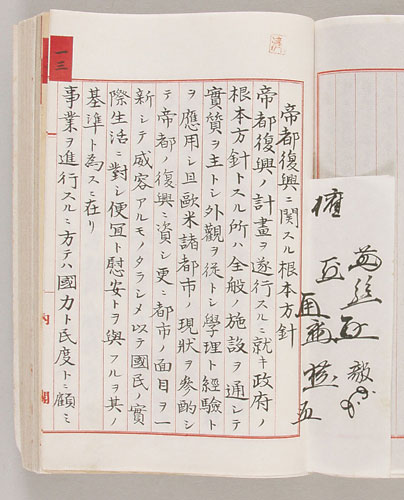 帝都復興ニ関スル根本方針
帝都復興ノ計畫ヲ遂行スルニ就キ政府ノ
根本方針トスル所ハ全般ノ施設ヲ通シテ
實質ヲ主トシ外觀ヲ從トシ學理ト經驗ト
ヲ應用シ且歐米諸都市ノ現狀ヲ參酌シ
テ帝都ノ復興ニ資シ更ニ都市ノ面目ヲ一
新シテ威容アルモノタラシメ以テ國民ノ實
際生活ニ對シ便宜ト慰安トヲ與フルヲ其ノ
基準ト為スニ在リ
事業ヲ進行スルニ方テハ國力ト民度トニ顧ミ
一三
内閣